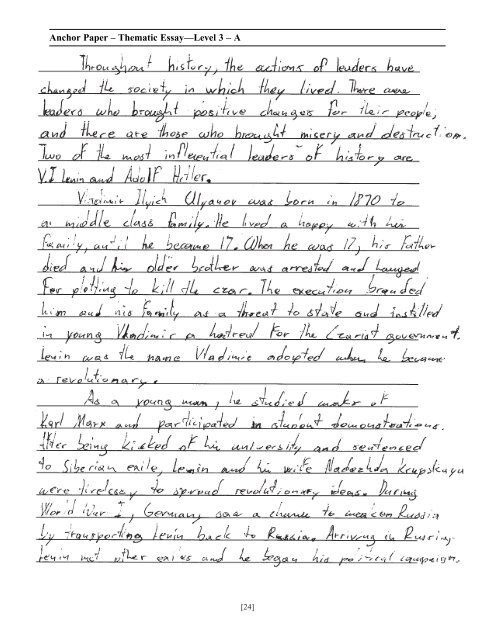 Anchor Paper – Thematic Essay—Level 3 – A
Throughout history, the actions of leaders have
changed the society in which they lived. There are
leaders who brought positive changes for their people,
and there are those who brought misery and destruction.
Two of the most influential leaders of history are
V.I Lenin and Adolf Hitler.
Vladimir Ilyich Ulyanov was born in 1870 to
a middle class family. He lived a happy with his
family, until he became 17. When he was 17, his father
died and his older brother was arrested and hanged
for plotting to kill the czar. The execution branded
him and his family as a threat to state and instilled
in young Vladimir a hatred for the Czarist government.
Lenin was the name Vladimir adopted when he became
a revolutionary.
As a young man, he studied works of
Karl Marx and participated in student demonstrations.
After being kicked of his university and sentenced
to Siberian exile, Lenin and his wife Nadezhda Krupskaya
were tirelessy to spread revolutionary ideas. During
World War I, Germany saw a chance to weaken Russia
by transporting Lenin back to Russia. Arriving in Russia,
Lenin met other exiles and he began his political campaign.
[24]